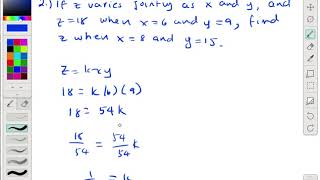 2.) If z varies jointly as x and y, and
z=18 when x=6 and y=9, find
z when x=8 and y=15.
z=kxy
18=k(6)(9)
18=54k
18/54 = 54/54 k
1 = k